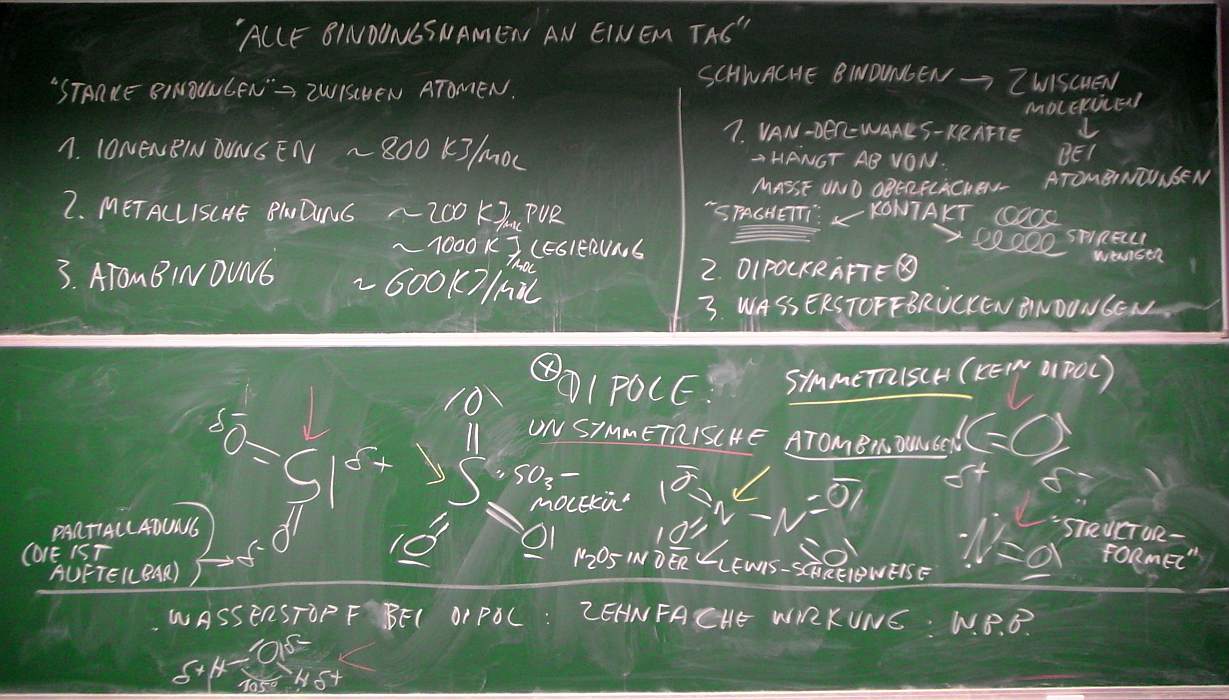 "ALLE BINDUNGSNAMEN AN EINEM TAG"
"STARKE BINDUNGEN" → ZWISCHEN ATOMEN.
1. IONENBINDUNGEN ~800 KJ/MOL
2. METALLISCHE BINDUNG ~200 KJ/MOL PUR
~1000 KJ/MOL LEGIERUNG
3. ATOMBINDUNG ~600 KJ/MOL
SCHWACHE BINDUNGEN → ZWISCHEN
MOLEKÜLEN
↓
BEI
ATOMBINDUNGEN
1. VAN-DER-WAALS-KRÄFTE
→ HÄNGT AB VON:
MASSE UND OBERFLÄCHEN-
KONTAKT
"SPAGHETTI"
SPIRELLI
WENIGER
2. DIPOLKRÄFTE ⊗
3. WASSERSTOFFBRÜCKENBINDUNGEN
⊗ DIPOLE:
UNSYMMETRISCHE
SYMMETRISCH (KEIN DIPOL)
ATOMBINDUNGEN
δ- O S δ+
O δ-
PARTIALLADUNG
(DIE IST
AUFTEILBAR)
O
S
O O
"SO3-
MOLEKÜL"
O N – N O
O O
N2O5 IN DER LEWIS-SCHREIBWEISE
C=O
δ+ δ-
N=O
"STRUKTUR-
FORMEL"
WASSERSTOFF BEI DIPOL: ZEHNFACHE WIRKUNG: W.B.B.
δ+ H O δ-
105° H δ+